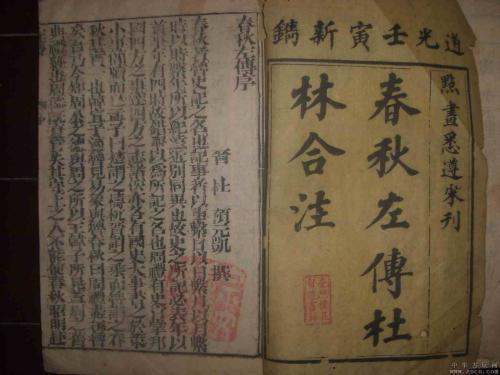 道光壬寅新鐫
點畫悉遵
刊
春秋左傳杜
林合注
春秋左傳序
晉 杜 預元凱 撰
春秋者魯史記之名也記事者以事繫日以日繫月以月繫
時以時繫年所以紀遠近別同異也故史之所記必表年以
首事年有四時故錯舉以為所記之名也周禮有史官掌邦
國四方之事達四方之志諸侯亦各有國史大事書之於策
小事簡牘而已孟子曰楚謂之檮杌晉謂之乘而魯謂之春
秋其實一也韓宣子適魯見易象與魯春秋曰周禮盡在魯
矣吾乃今知周公之德與周之所以王韓子所見蓋周之舊
典禮經也周德既衰官失其守上之人不能使春秋昭明赴